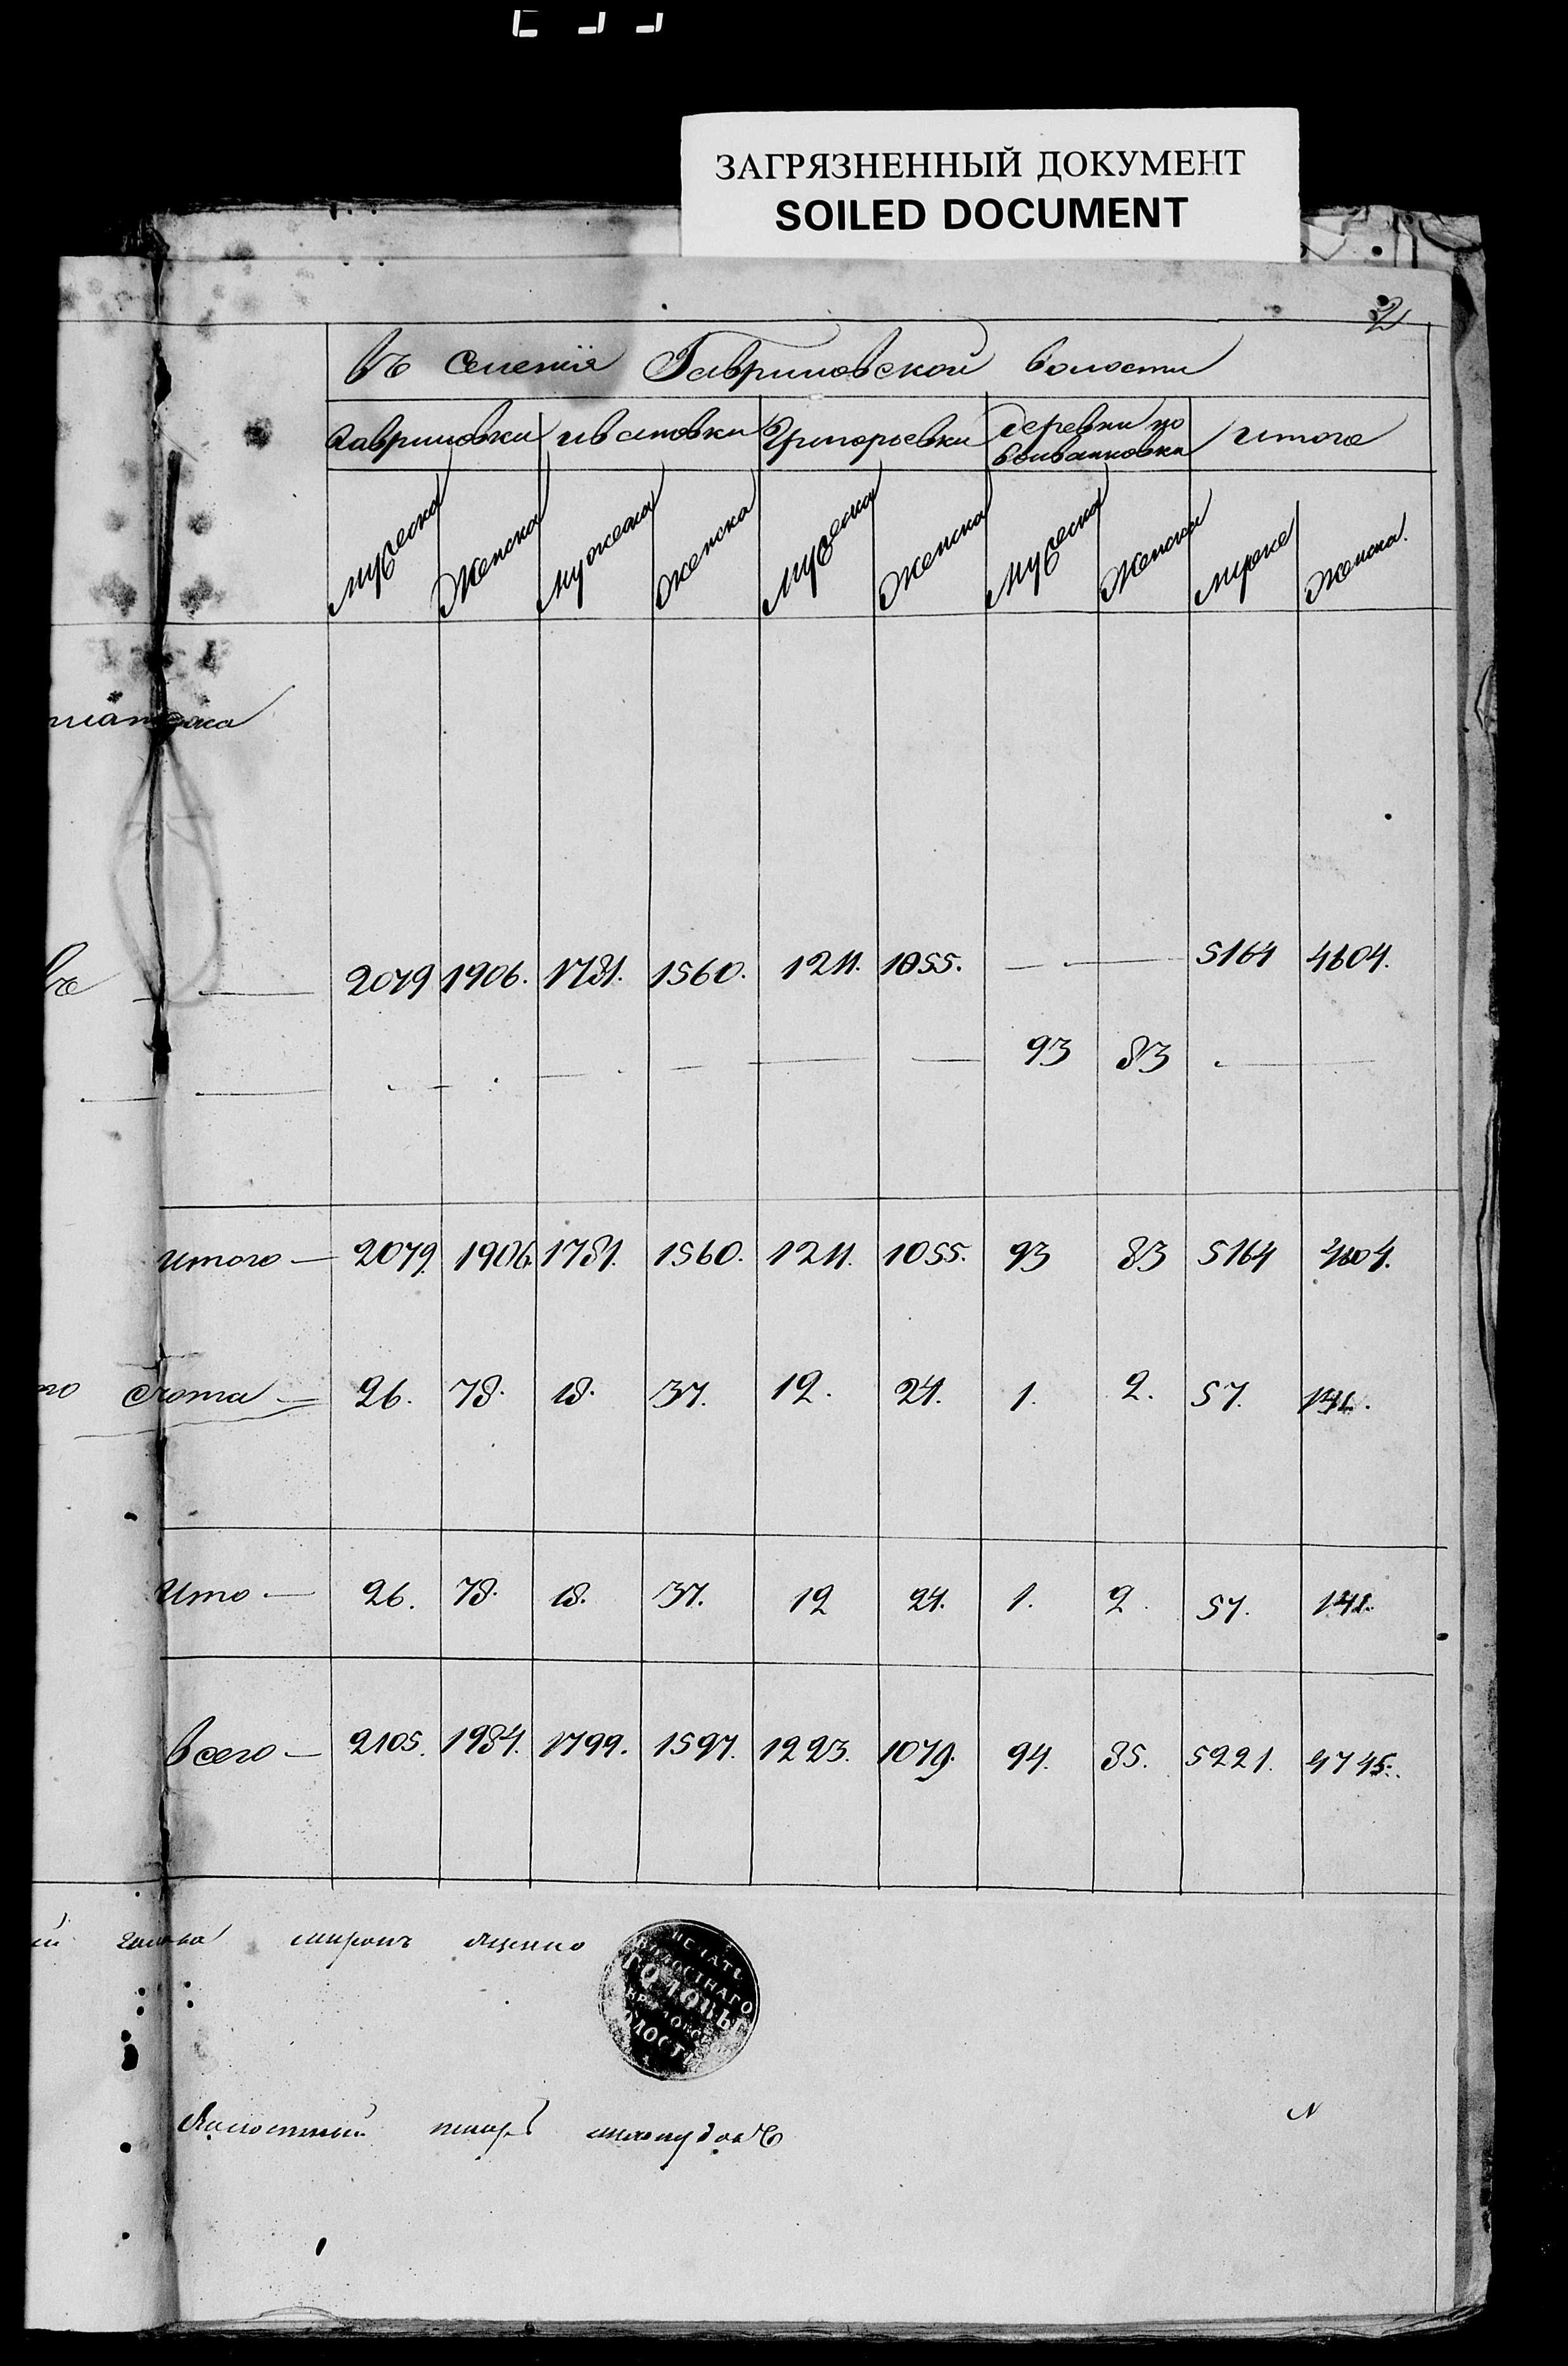 ЗАГРЯЗНЕННЫЙ ДОКУМЕНТ
SOILED DOCUMENT
2
Въ Селенія Гавриловской волости
Гавриловки ивановки Григорьевки деревни Ново итого
Мужеска Женска Мужеска Женска Мужеска Женска Мужеска Женска мужеск Женска.
2079 1906. 1781. 1560. 1211. 1055. — — 5164 4604.
— — — — — — 93 83 — —
итого — 2079. 1906. 1781. 1560. 1211. 1055. 93 83 5164 4604.
26. 78. 18. 37. 12. 24. 1. 2. 57. 141.
Ито — 26. 78. 18. 37. 12 24. 1. 2. 57. 141.
Всего — 2105. 1984. 1799. 1597. 1223. 1079. 94. 85. 5221. 4745.
голова миронъ
ПЕЧАТЬ
ВОЛОСТНАГО
ГОЛОВЫ
ВОЛОСТИ
Волостний писарь